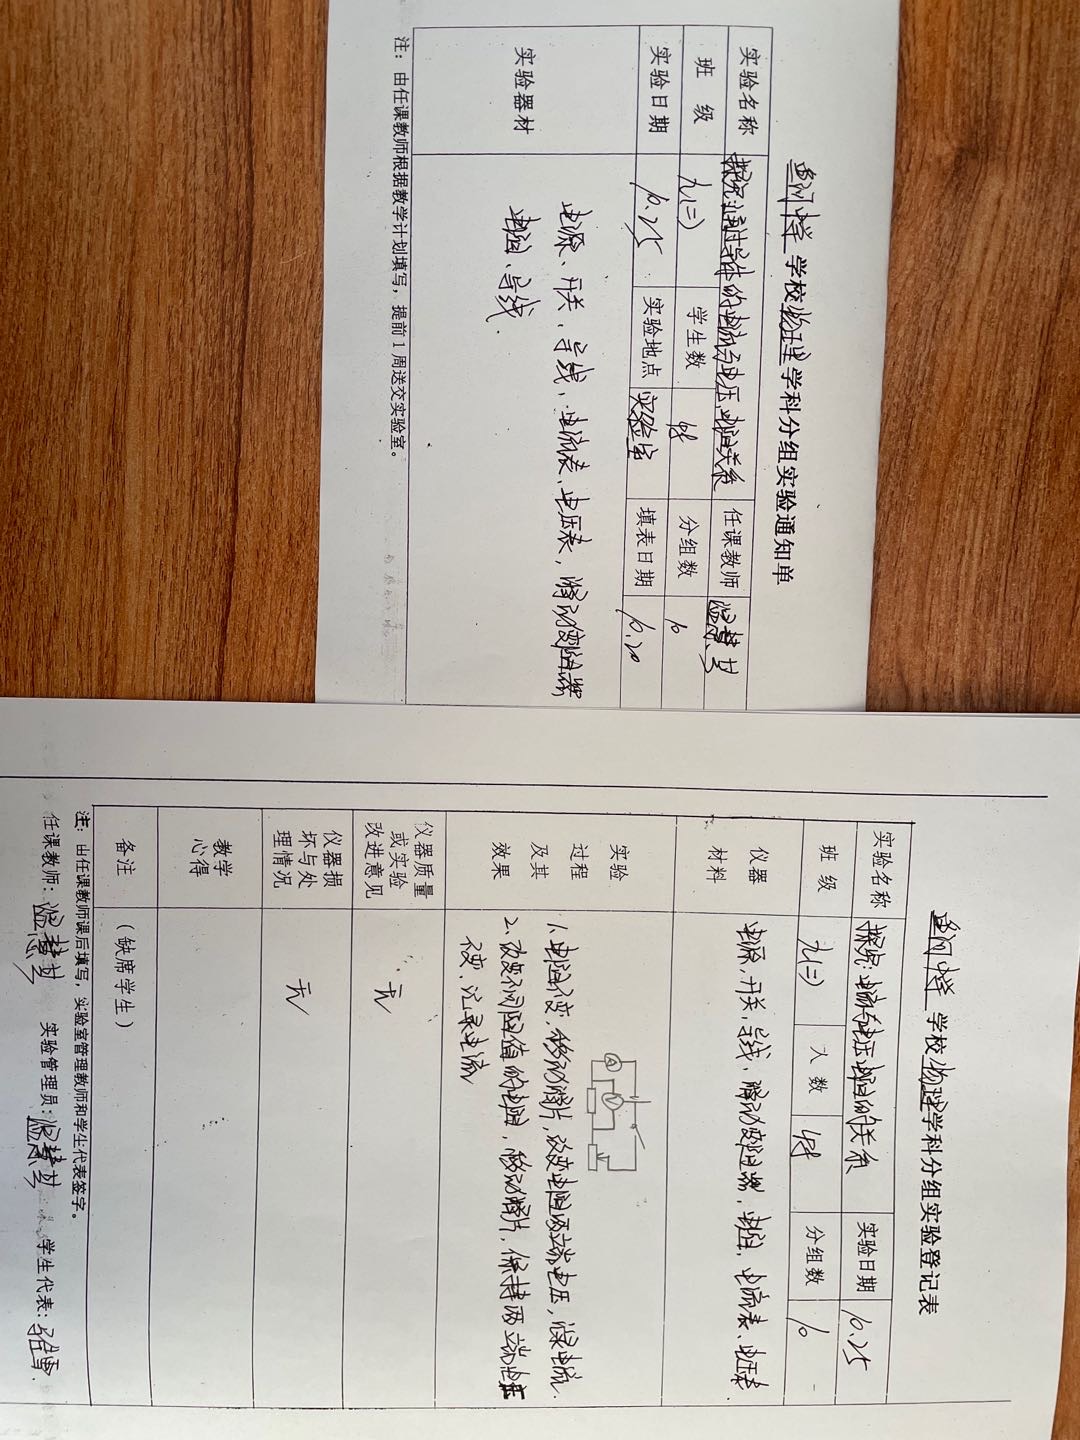 学校物理学科分组实验通知单
实验名称 探究:通过导体的电流与电压,电阻关系 任课教师
班 级 九(二) 学生数 48 分组数 10
实验日期 10.25 实验地点 实验室 填表日期 10.20
实验器材
电源、开关、导线、电流表、电压表,滑动变阻器
电阻、导线.
注:由任课教师根据教学计划填写,提前1周送交实验室。
学校物理学科分组实验登记表
实验名称 探究:电流与电压电阻的关系 实验日期 10.25
班 级 九(二) 人 数 48 分组数 10
仪器
材料
电源,开关,导线,滑动变阻器,电阻,电流表、电压表.
实验
过程
及其
效果
A
V
1、电阻不变,移动滑片,改变电阻两端电压,记录电流.
2、改变不同阻值的电阻,移动滑片,保持两端电压
不变,记录电流
仪器质量
或实验
改进意见
无
仪器损
坏与处
理情况
无
教学
心得
备注
(缺席学生)
注:由任课教师课后填写,实验室管理教师和学生代表签字。
任课教师: 实验管理员: 学生代表: